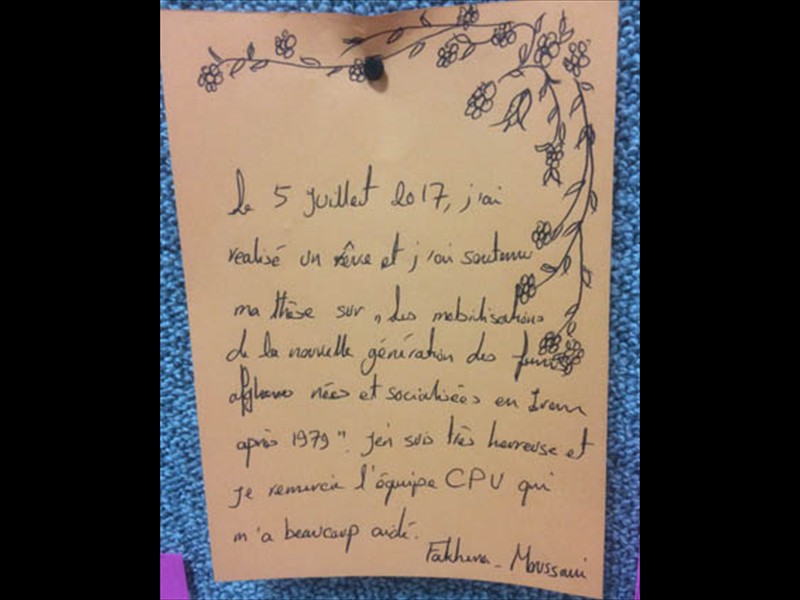 Le 5 Juillet 2017, j'ai
realisé un rêve et j'ai soutenu
ma thèse sur „Les mobilisations
de la nouvelle génération des femmes
afghanes nées et socialisées en Iran
après 1979". J'en suis très heureuse et
je remercie l'équipe CPU qui
m'a beaucoup aidé.
Moussaui